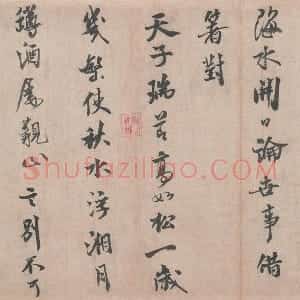 海水開口論世事借
箸對
天子瑞高如松一歲
幾使秋水浮湘月
罇酒屬言別不可
Shufaziliao.com